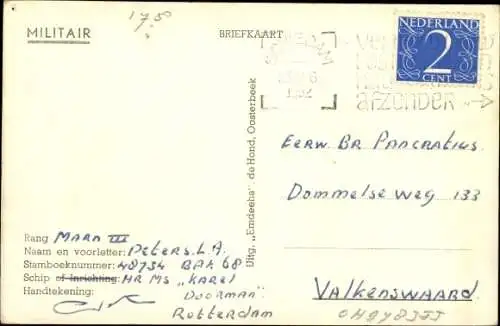 1750
MILITAIR
BRIEFKAART
NEDERLAND
2
CENT
afzonder
Uitg. „Emdeeha", de Hond, Oosterbeek
Eerw. Br Pancratius.
Dommelseweg 133
Valkenswaard
Rang MARN III
Naam en voorletter: Peters. L.A.
Stamboeknummer: 48734 BAK 68
Schip of Inrichting: HR MS „KAREL
Handtekening: DOORMAN"
Rotterdam